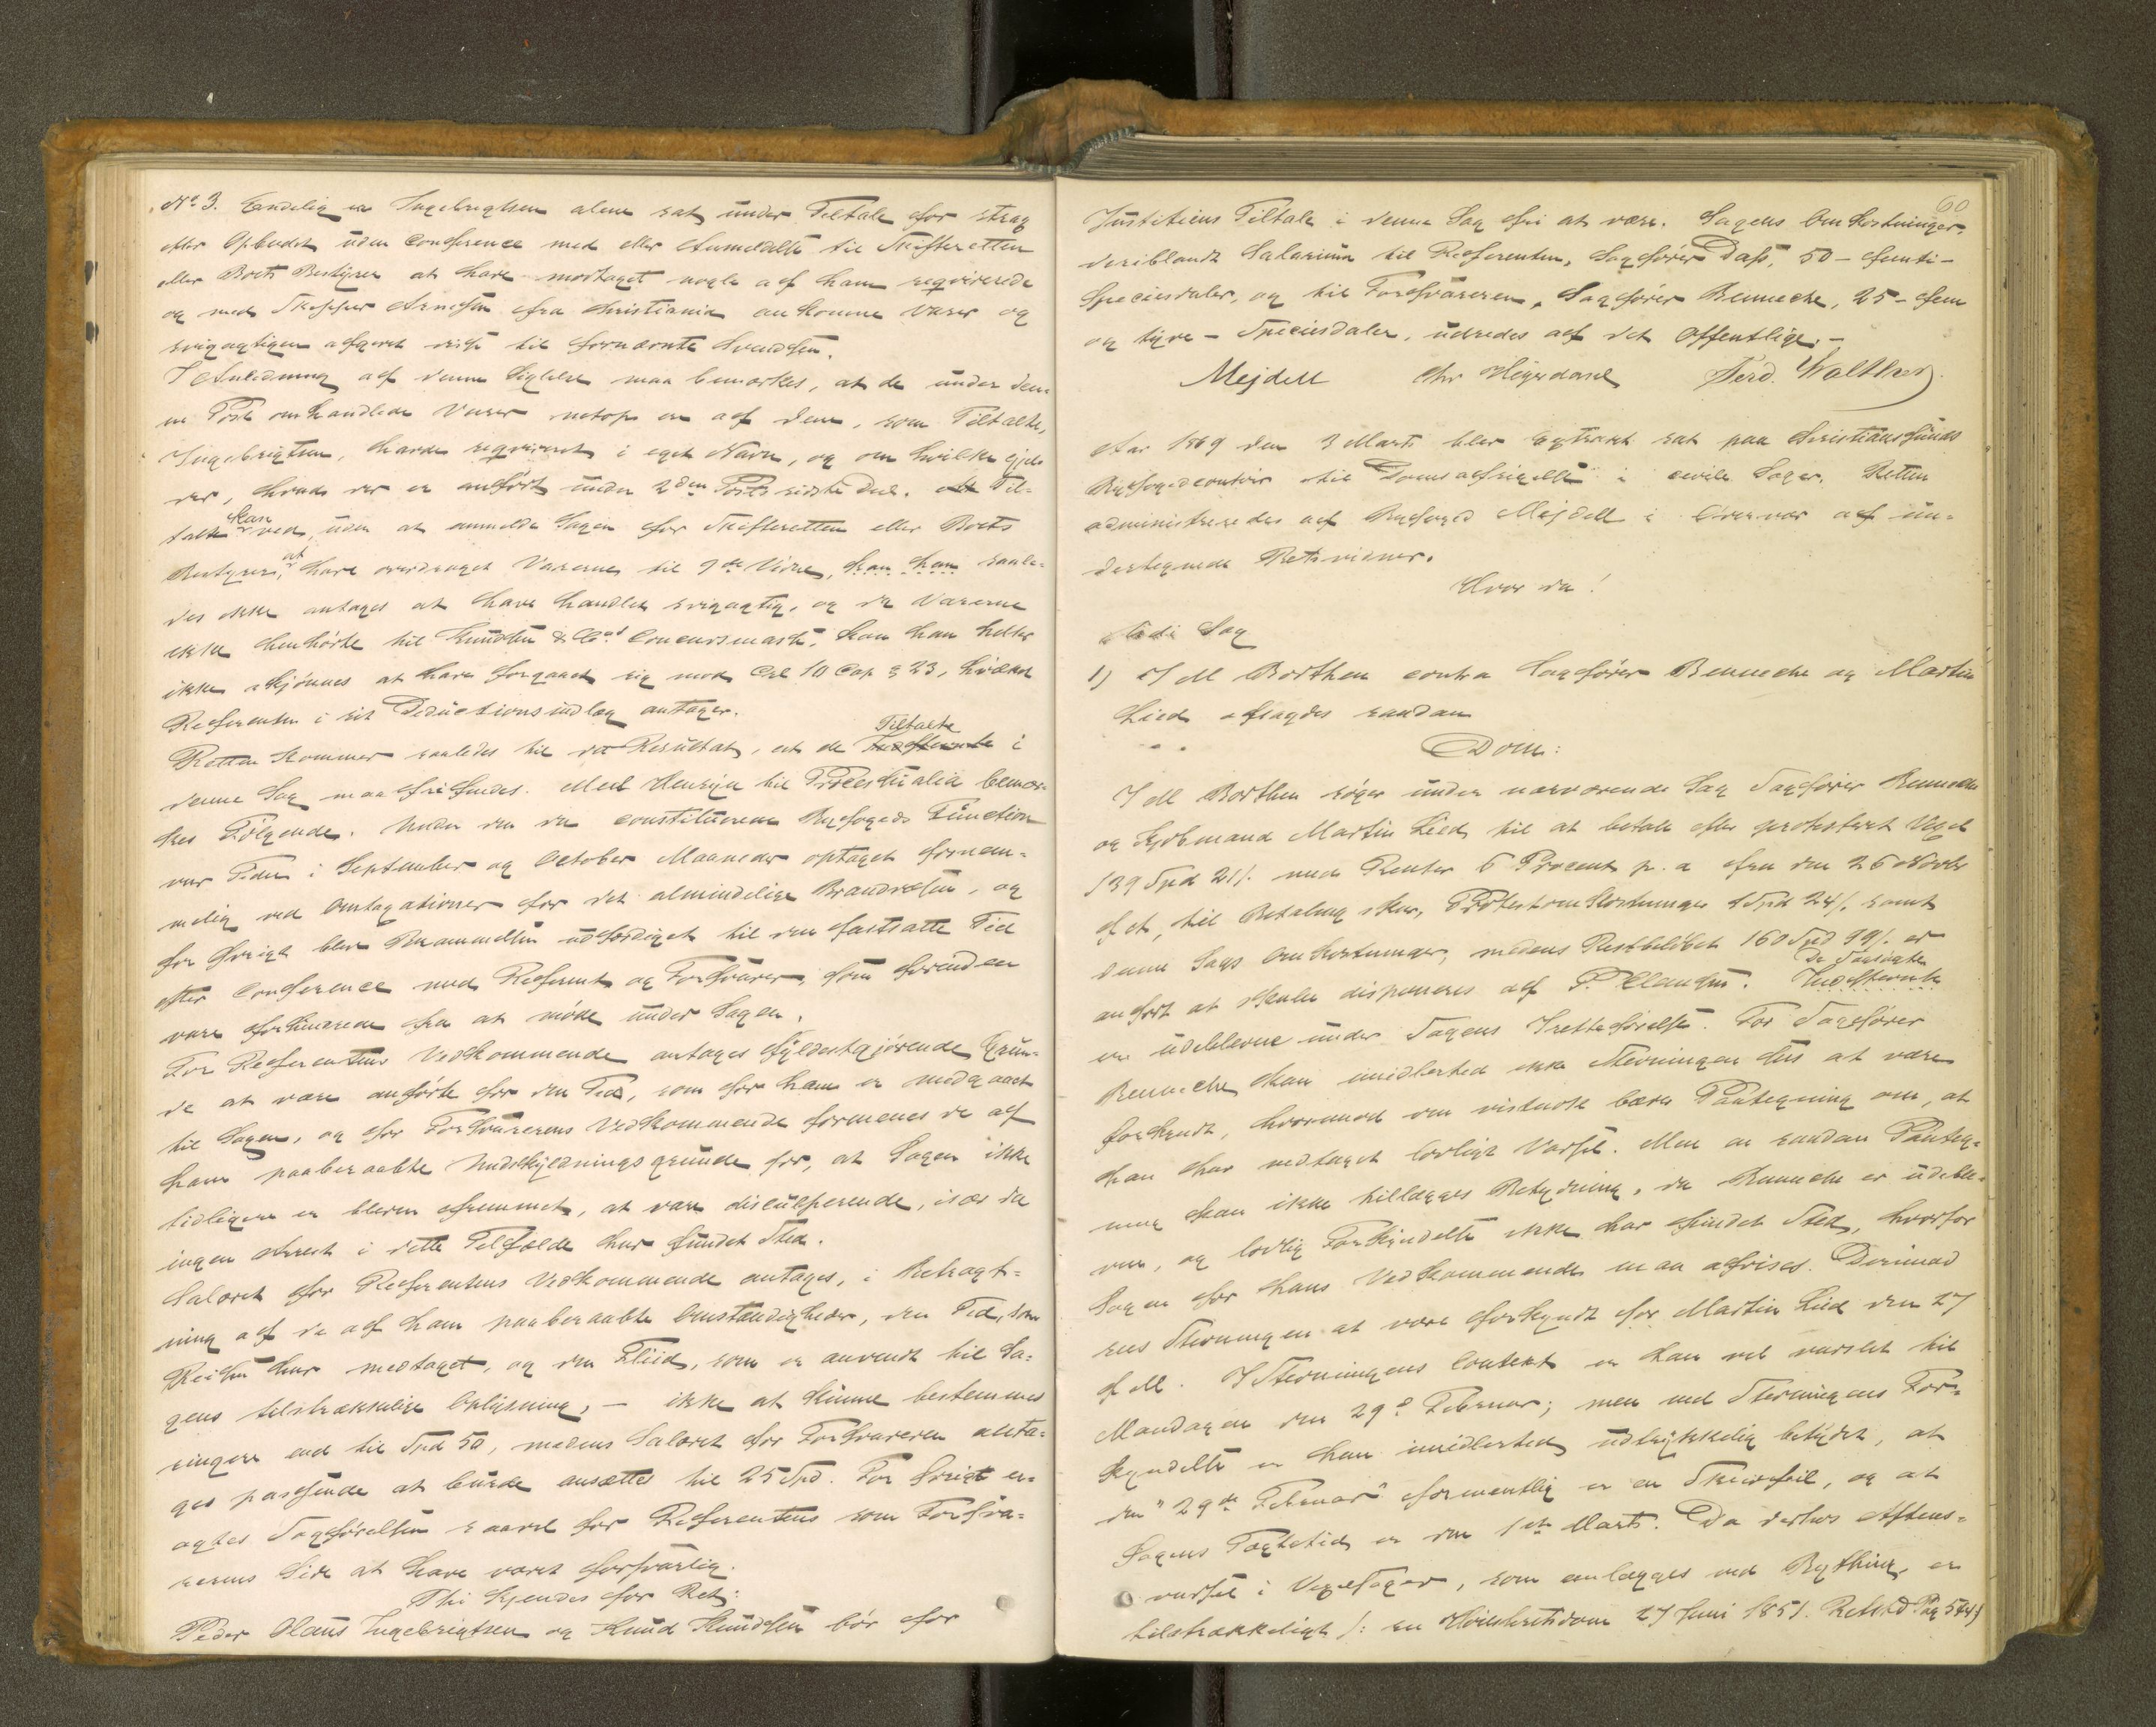 No 3. Endelig er Ingebrigtsen alene sat under Tiltale for strax
efter Opbudet uden Conference med eller Anmeldelse til Skifteretten
eller Boets Bestyrer at have modtaget nogle af ham reqvirerede
og med Skipper Arnesen fra Christiania ankomne Varer og
svigagtigen afgivet disse til fornævnte Svendsen.
I Anledning af denne Sigtelse maa bemærkes, at de under den-
ne Post omhandlede Varer netop er af dem, som Tiltalte,
Ingebrigtsen, havde reqvireret i eget Navn, og om hvilke gjel-
der, hvad der er anført under 2den Posts sidste Deel. At Til-
talte kan ved, uden at anmelde Sagen for Skifteretten eller Boets
Bestyrer, at have overdraget Varerne til 7de Vidne, kan han saale-
des ikke antages at have handlet svigagtig, og da Varerne
ikke henhørte til Knudsen & Co.s Concursmasse, kan han heller
ikke skjønnes at have forgaaet sig mod Crl. 10 Cap § 23, hvilket
Referenten i sit Deductionsindlæg antager.
Retten kommer saaledes til det Resultat, at de Tiltalte i
denne Sag maa frifindes. Med Hensyn til Processualia bemær-
kes Følgende. Under den da constituerede Byfogeds Function
var Tiden i September og October Maaneder optaget fornem-
melig ved Omtaxationer for det almindelige Brandvæsen, og
for Øvrigt blev Berammelsen udfærdiget til den fastsatte Tid
efter Conference med Referent og Forsvarer, som forinden
vare forhindrede fra at møde under Sagen.
For Referentens Vedkommende antages fyldestgjørende Grun-
de at være anførte for den Tid, som for ham er medgaaet
til Sagen, og for Forsvarerens Vedkommende formenes de af
ham paaberaabte Undskyldningsgrunde for, at Sagen ikke
tidligere er bleven fremmet, at være disculperende, især da
ingen Arrest i dette Tilfælde har fundet Sted.
Salæret for Referentens Vedkommende antages, i Betragt-
ning af de af ham paaberaabte Omstændigheder, den Tid, som
Reisen har medtaget, og den Fliid, som er anvendt til Sa-
gens tilstrækkelige Oplysning, – ikke at kunne bestemmes
ringere end til Spd 50, medens Salæret for Forsvareren anta-
ges passende at burde ansættes til 25 Spd. For Øvrigt er-
agtes Sagførelsen saavel for Referentens som Forsva-
rerens Side at have været forsvarlig.
Thi kjendes for Ret:
Peder Claus Ingebrigtsen og Knud Knudsen bør for
60
Justitiens Tiltale i denne Sag fri at være. Sagens Omkostninger,
deriblandt Salarium til Referenten, Sagfører Dass, 50 – femti –
Speciesdaler, og til Forsvareren, Sagfører Benneche, 25 – fem
og tyve – Speciesdaler, udredes af det Offentlige. –
Mejdell Chr Heyerdahl Ferd. Walther.
Aar 1869 den 3 Marts blev Extraret sat paa Christianssunds
Byfogedcontoir til Domsafsigelse i civile Sager. Retten
administreredes af Byfoged Mejdell i Overvær af un-
dertegnede Retsvidner.
Hvor da!
I Sag
1) I M Borthen contra Sagfører Benneche og Martin
Lied afsagdes saadan
Dom:
I M Borthen søger under nærværende Sag Sagfører Benneche
og Kjøbmand Martin Lied til at betale efter protesteret Vexel
139 Spd 21 ß. med Renter 6 Procent p. a fra den 26 Novbr
f A, til Betaling skeer, Protestomkostninger 1 Spd 24 ß. samt
denne Sags Omkostninger, medens Restbeløbet 160 Spd 99 ß. er
anført at skulle disponeres af P. Clausen. De Saggivne Indstevnte
ere udeblevne under Sagens Iretteførelse. For Sagfører
Bennche kan imidlertid ikke Stevningen sees at være
forkyndt, hvorimod den vistnok bærer Paategning om, at
han har vedtaget lovligt Varsel. Men en saadan Paateg-
ning kan ikke tillægges Betydning, da Bennche er udeble-
ven, og lovlig Forkyndelse ikke har fundet Sted, hvorfor
Sagen for hans Vedkommende maa afvises. Derimod
sees Stevningen at være forkyndt for Martin Lied den 27
f. M. I Stevningens Context er han vel varslet til
Mandagen den 29de Februar; men ved Stevningens For-
kyndelse er han imidlertid udtrykkelig betydet, at
den "29de Februar" formentlig er en Skrivfeil, og at
Sagens Tægtetid er den 1ste Marts. Da derhos Aftens-
varsel i Vexelsager, som anlægges ved Bything, er
tilstrækkeligt /: see Høiesteretsdom 27 Juni 1851. Retstid. Pag 574 :/